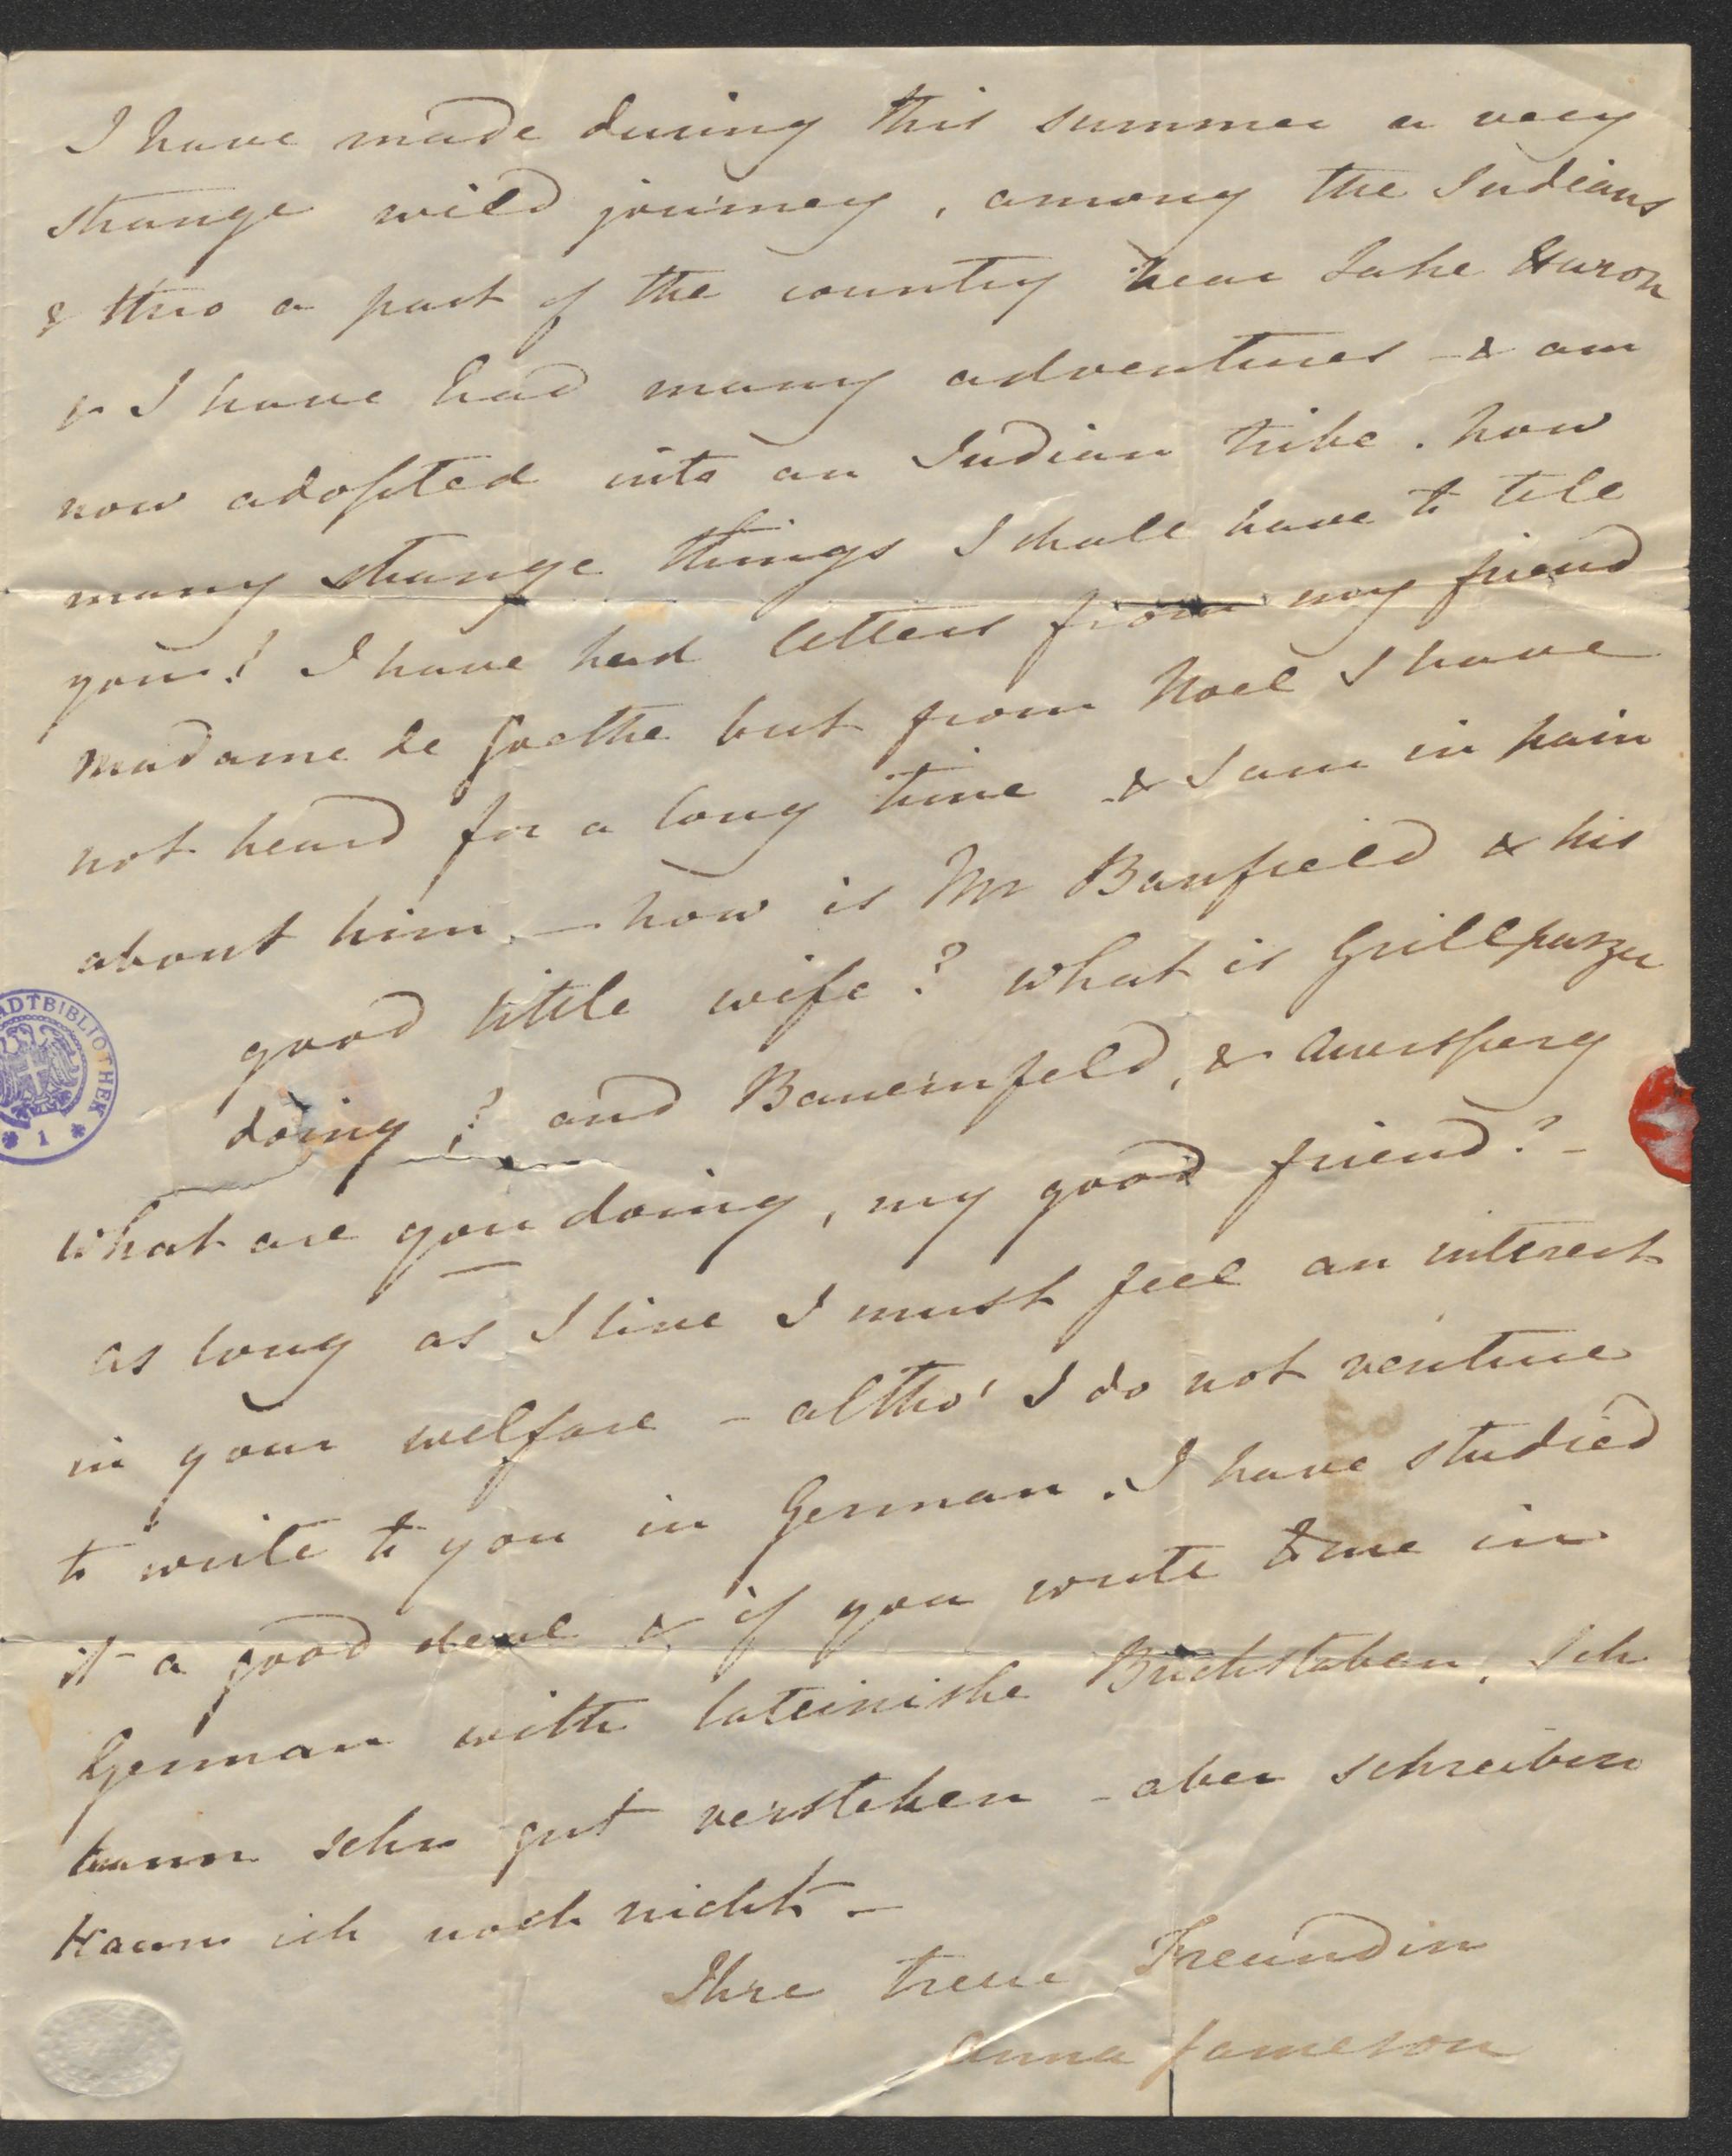 I have made during this summer a very
strange wild journey, among the Indians
& thro a part of the country near Lake Huron
& I have had many adventures - & am
now adopted into an Indian tribe. how
many strange things I shall have to tell
you! I have had letters from my friend
Madame de Goethe but from Noel I have
not heard for a long time - & I am in pain
about him - how is Mr Banfield & his
good little wife? what is Grillparzer
doing? and Bauernfeld, & Auersperg
what are you doing, my good friend? -
as long as I live I must feel an interest
in your welfare - altho' I do not venture
to write to you in German. I have studied
it a good deal & if you write to me in
German with lateinishe Buchstaben, Ich
kann sehr gut verstehen - aber schreiben
kann ich noch nicht -
Ihre treue Freundin
Anna Jameson
ADTBIBLIOTHEK
* 1 *